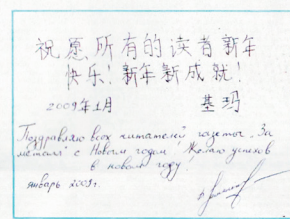 祝愿所有的读者新年
快乐!新年新成就!
2009年1月 基玛
Поздравляю всех читателей газеты "За
" с Новым годом, желаю успехов
в новом году!
январь 2009г.